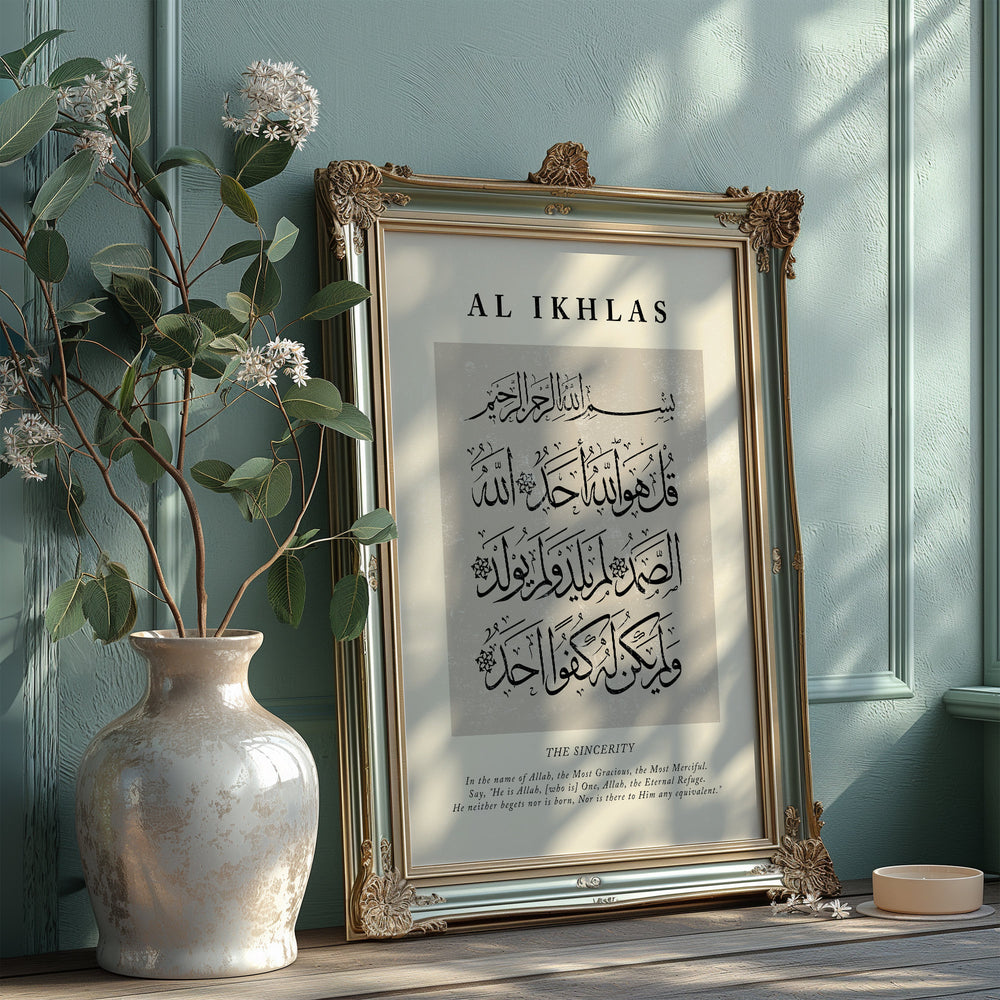 AL IKHLAS
بِسْمِ اللهِ الرَّحْمٰنِ الرَّحِيْمِ
قُلْ هُوَ اللهُ أَحَدٌ ۞ اللهُ
الصَّمَدُ ۞ لَمْ يَلِدْ وَلَمْ يُولَدْ ۞
وَلَمْ يَكُنْ لَهُ كُفُوًا أَحَدٌ ۞
THE SINCERITY
In the name of Allah, the Most Gracious, the Most Merciful.
Say, "He is Allah, [who is] One, Allah, the Eternal Refuge.
He neither begets nor is born, Nor is there to Him any equivalent."